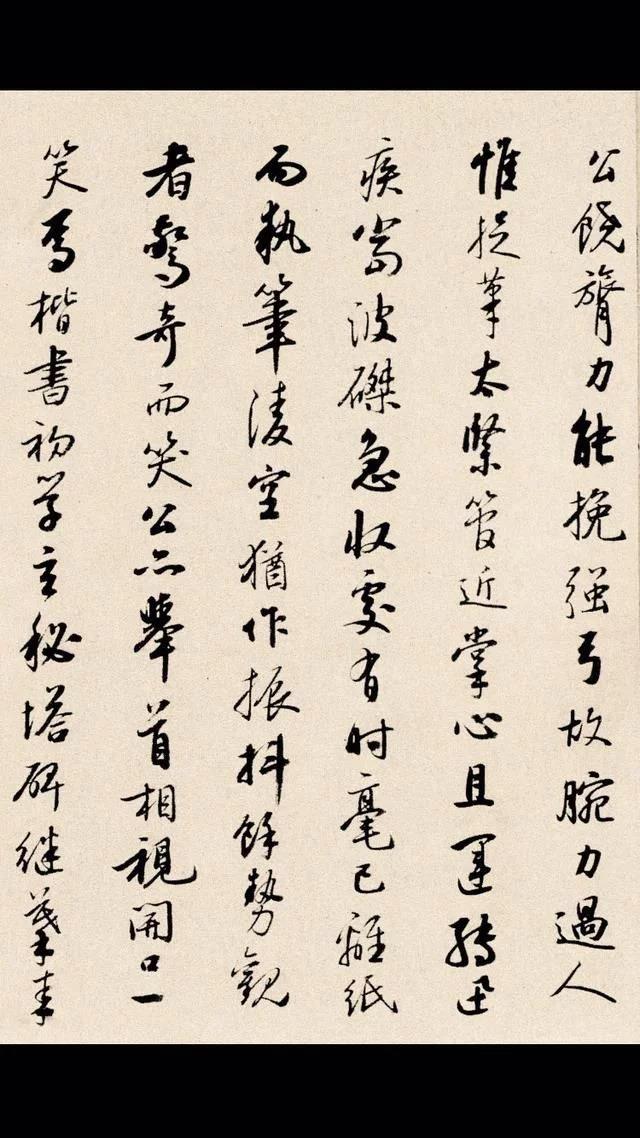 公饒膂力能挽强弓故腕力過人
惟捉筆太緊管近掌心且運轉迅
疾當波磔急收處有时毫已離紙
而执筆凌空猶作振抖餘勢觀
者驚奇而笑公亦舉首相視開口一
笑焉楷書初学玄秘塔碑继摹